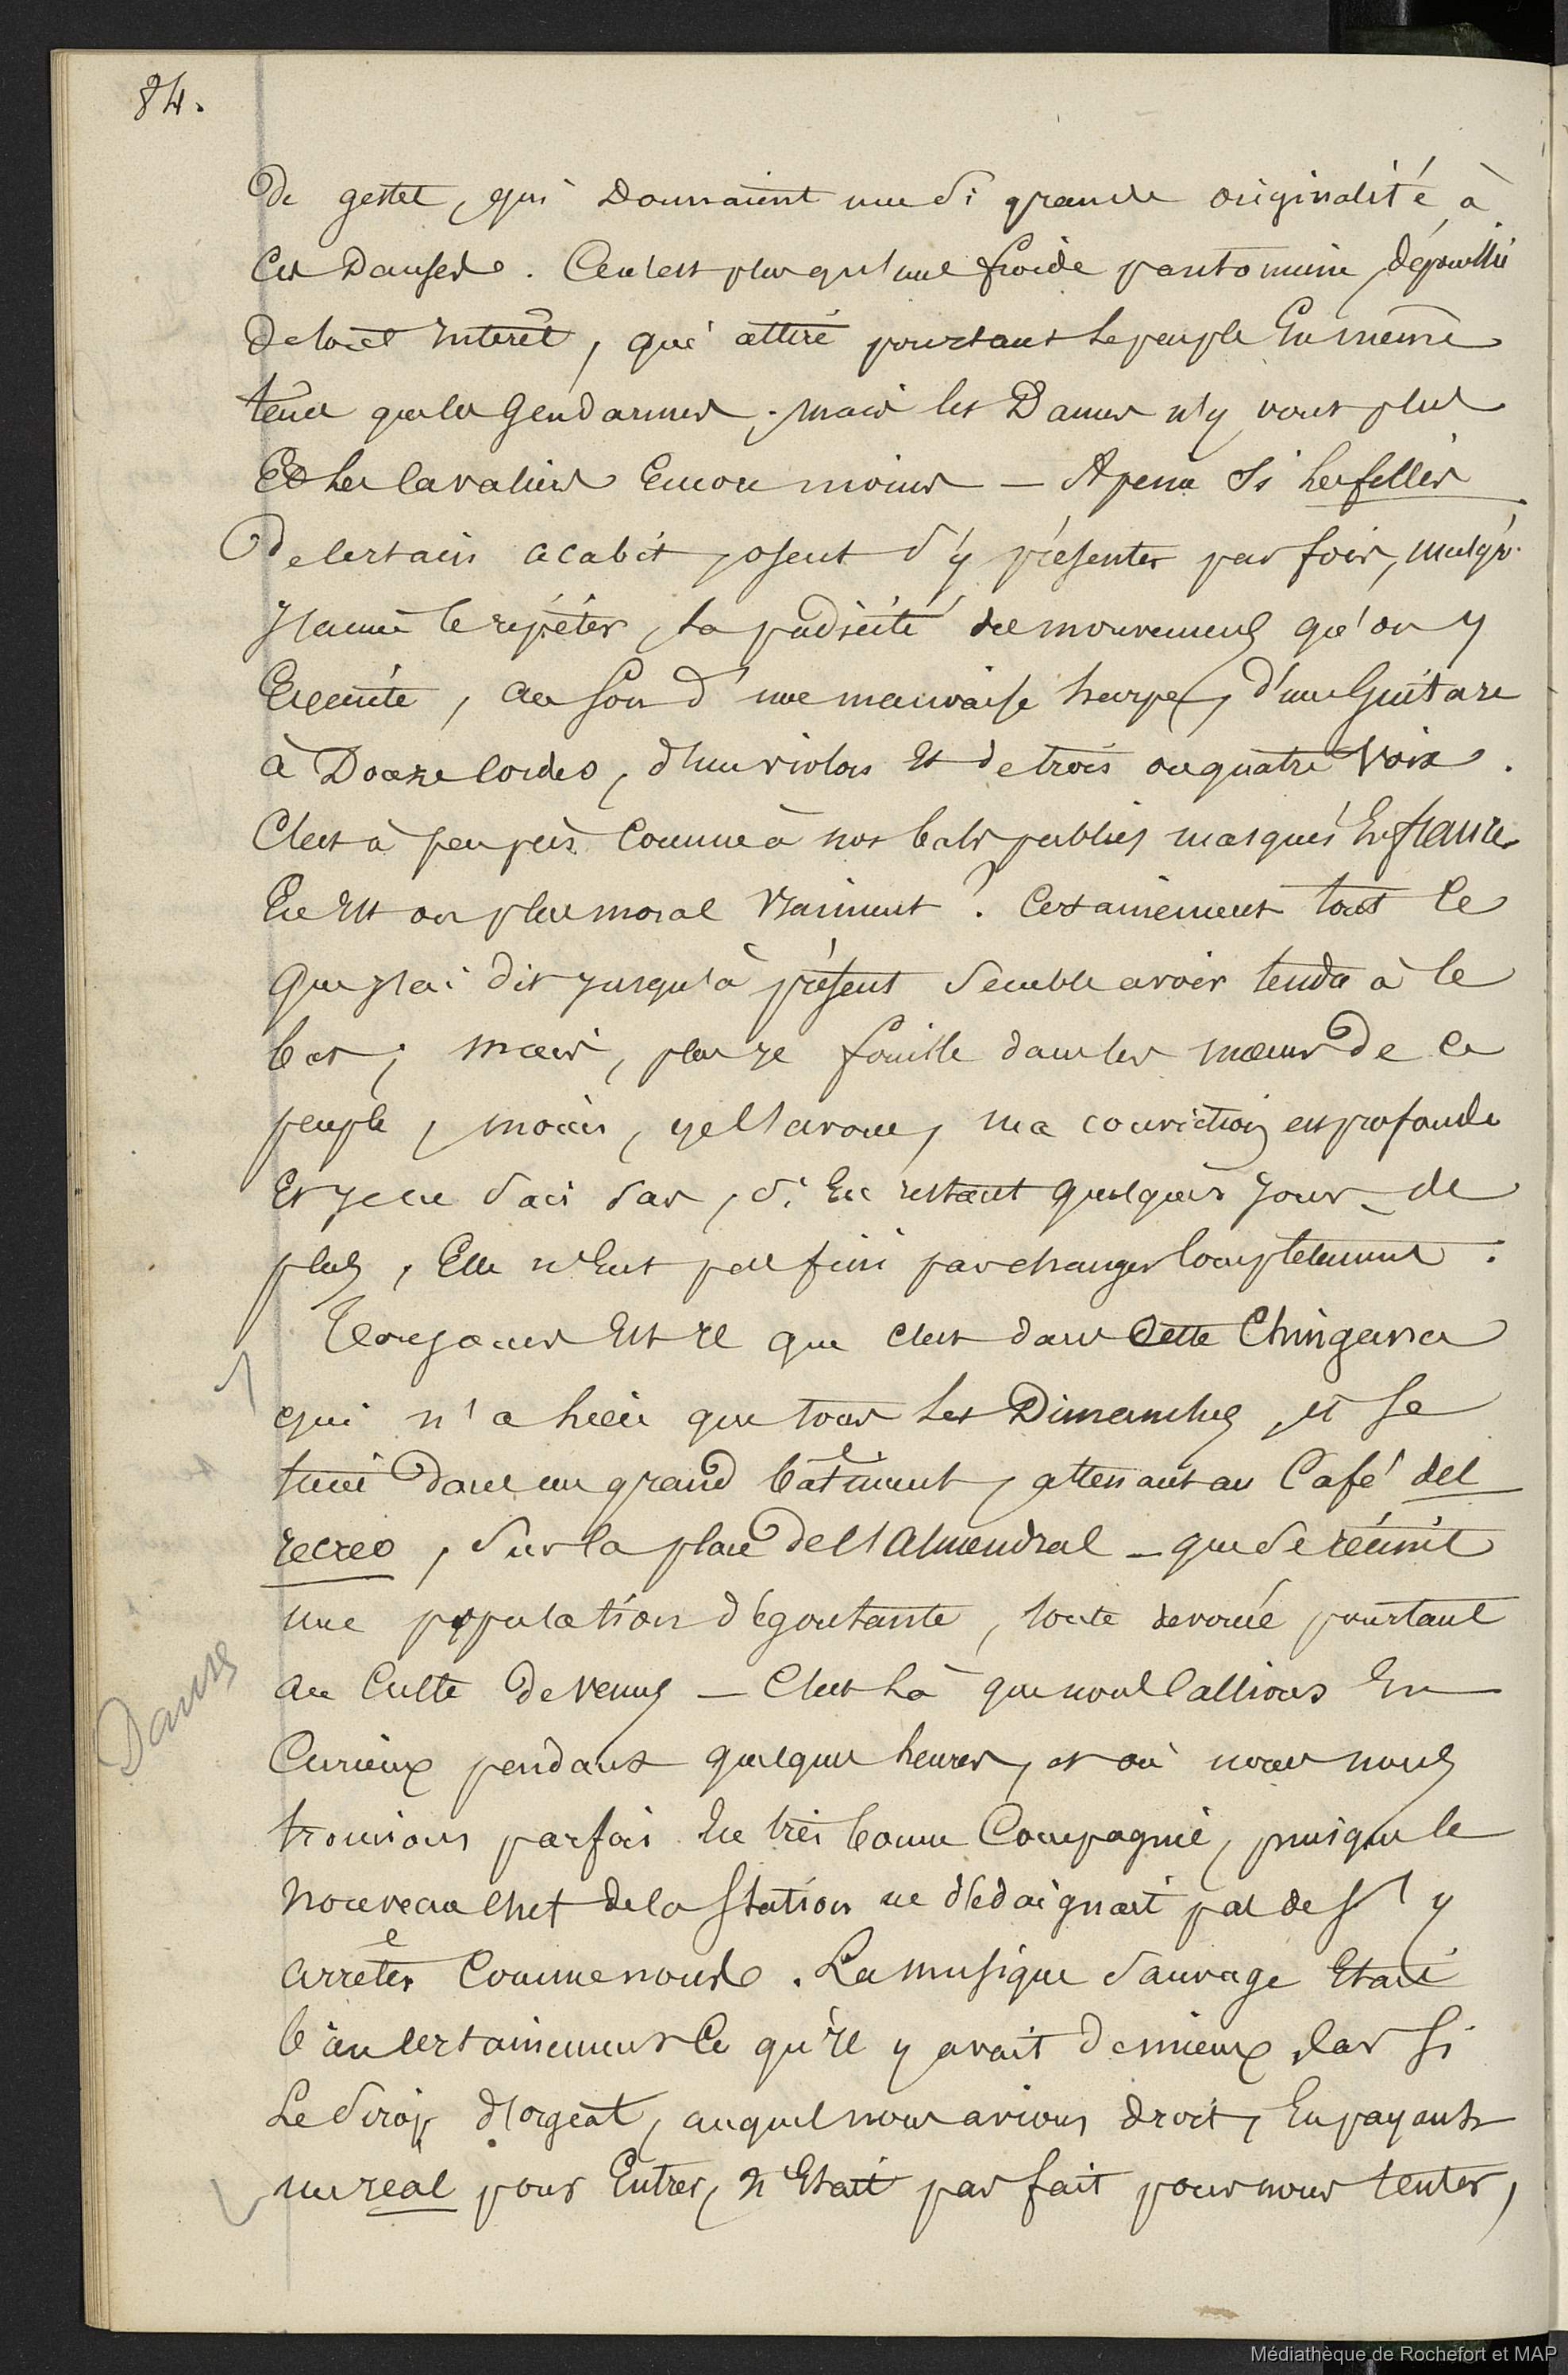 84.
de gestes, qui donnaient une si grande originalité à
ces Danses. Ce n'est plus qu'une froide pantomime, dépouillée
de tout interêt, qui attire pourtant le peuple En même
tems que les Gendarmes; mais les Dames n'y vont plus
Et les Cavaliers Encore moins — A peine si les filles
de certain acabit, osent s'y présenter par fois, malgré
j'aime le répéter, la pudicité des mouvemens qu'on y
Exécute, au son d'une mauvaise harpe, d'une Guitare
à Douze Cordes, d'un violon Et de trois ou quatre Voix.
C'est à peu près Comme à nos bals publics masqués En france
En Est on plus moral vraiment? Certainement tout Ce
que j'ai dit jusqu'à présent semble avoir tendu à Ce
but; mais, plus je fouille dans les mœurs de Ce
peuple, moins, je l'avoue, ma conviction est profonde
Et je ne sais pas, si En restant quelques jours de
plus, Elle n'Eut pas fini par changer Complètement.
Toujours Est il que c'est dans Cette Chingana
qui n'a lieu que tous les Dimanches, et se
tient Dans un grand bâtiment, attenant au Café del
recreo, sur la place de l'Almendral — que se réunit
une population dégoutante, toute dévouée pourtant
au Culte de Venus — C'est là que nous allions En
Curieux pendant quelques heures, et où nous nous
trouvions parfois En très bonne Compagnie, puisque le
nouveau Chef de la Station ne dédaignait pas de s'y
arrêter Comme nous. La musique sauvage Etait
bien certainement Ce qu'il y avait de mieux, Car si
Le sirop d'orgeat, auquel nous avions droit, En payant
un real pour Entrer, n'Etait pas fait pour nous tenter,
Danse
Médiathèque de Rochefort et MAP